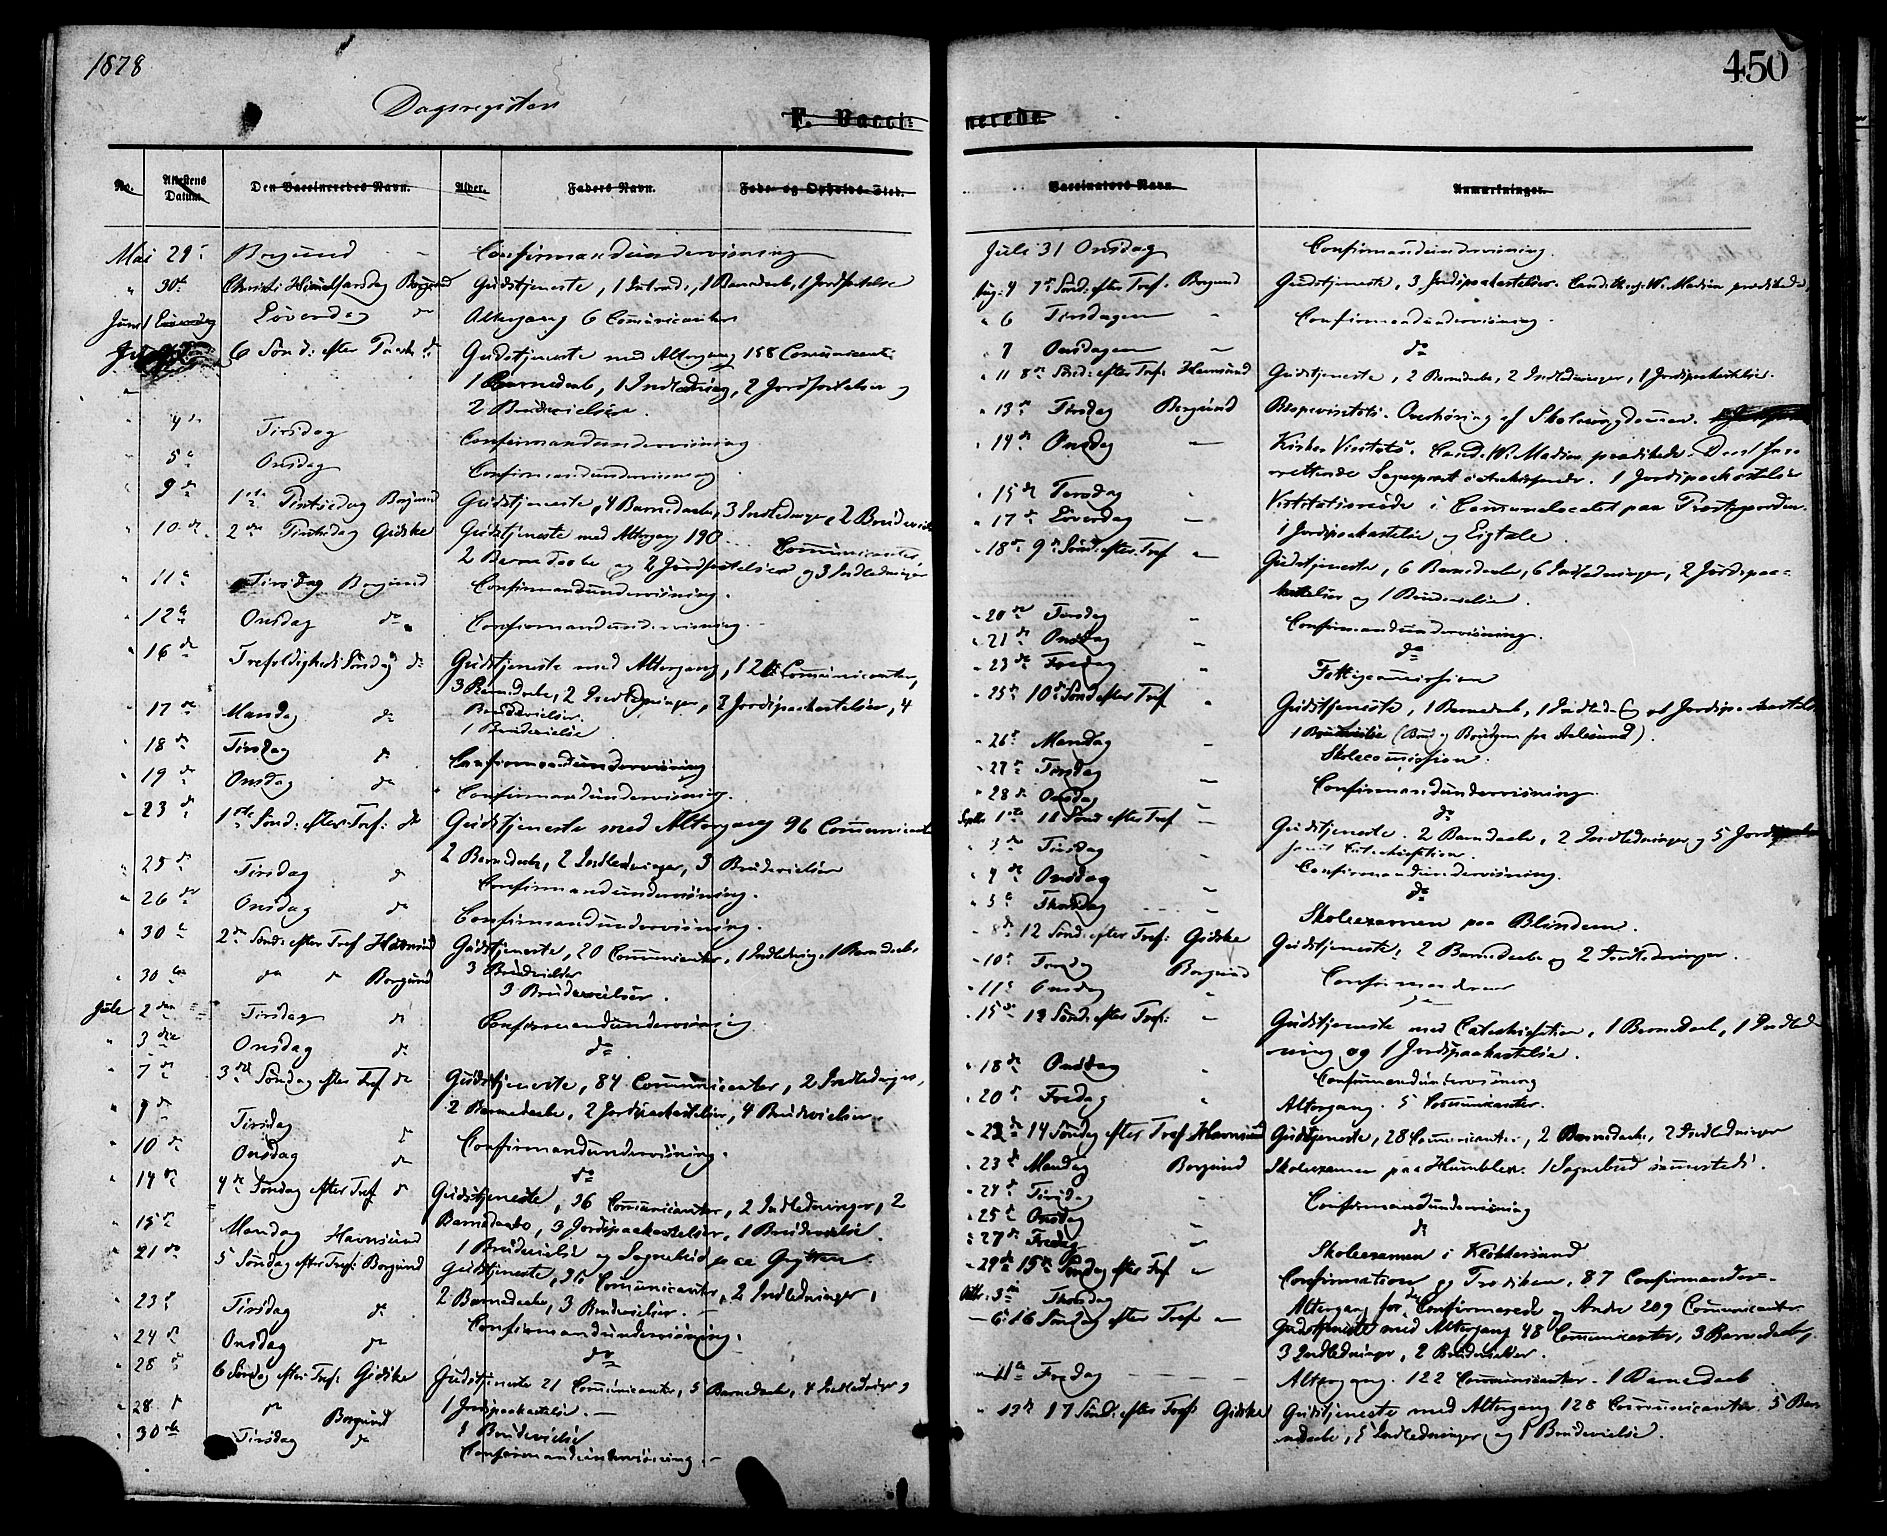 1878
450
Dagsregister
F. Vacci-
nerede
No.
Attestens Datum.
Den Vaccineredes Navn.
Alder.
Faders Navn.
Føde- og Opholds-Sted.
Mai 29 Borgund Confirmandundervisning
" 30te Christi Himmelfartsdag Borgund Gudstjeneste, 1 Introd:, 1 Barnedaab, 1 Jordfæstelse
Juni 1 Løverdag do Altergang 6 Communicanter
6 Sønd: efter Paaske do Gudstjeneste med Altergang 158 Communicanter
1 Barnedaab, 1 Indledning, 2 Jordfæstelser og
2 Brudevielser.
" 4de Tirsdag Confirmandundervisning
" 5te Onsdag Confirmandundervisning
" 9de 1ste Pintsedag Borgund Gudstjeneste, 4 Barnedaab, 3 Indledninger, 2 Brudevielser
" 10de 2den Pintsedag Giske Gudstjeneste med Altergang 190 Communicanter
2 Barnedaabe og 2 Jordfæstelser og 3 Indledninger
" 11te Tirsdag Borgund Confirmandundervisning.
" 12te Onsdag do Confirmandundervisning.
" 16de Trefoldigheds Søndag do Gudstjeneste med Altergang, 126 Communicanter,
3 Barnedaabe, 2 Indledninger, 2 Jordspaakastelser, 4
Brudevielser.
" 17de Mandag do 1 Brudevielse
" 18de Tirsdag do Confirmandundervisning
" 19de Onsdag do Confirmandundervisning.
" 23de 1ste Sønd: efter Tref: do Gudstjeneste med Altergang 96 Communicanter
2 Barnedaabe, 2 Indledninger, 3 Brudevielser
" 25de Tirsdag do Confirmandundervisning.
" 26de Onsdag do Confirmandundervisning.
" 30te 2den Sønd: efter Tref Havnsund Gudstjeneste, 20 Communicanter, 1 Indledning, 1 Barnedaab
3 Brudevielser
" 30te do do Borgund 3 Brudevielser.
Juli 2den Tirsdag do Confirmandundervisning
" 3die Onsdag do do
" 7de 3die Søndag efter Tref do Gudstjeneste, 84 Communicanter, 2 Indledninger,
2 Barnedaabe, 2 Jordspaakastelser, 4 Brudevielser
" 9de Tirsdag do Confirmandundervisning.
" 10de Onsdag do do
" 14de 4de Søndag efter Tref do Gudstjeneste, 36 Communicanter, 2 Indledninger, 2
Barnedaabe, 3 Jordspaakastelser, 1 Brudevielse.
" 15de Mandag Havnsund 1 Brudevielse og Sognebud paa Grytten
" 21de 5 Søndag efter Tref: Borgund Gudstjeneste, 36 Communicanter, 2 Indledninger,
2 Barnedaabe, 3 Brudevielser.
" 23de Tirsdag do Confirmandundervisning.
" 24de Onsdag do do
" 28de 6 Søndag efter Tref: Gidske Gudstjeneste 21 Communicanter, 5 Barnedaabe, 4 Indledninger og
1 Jordspaakastelse.
" 28 do Borgund 1 Brudevielse
" 30te Tirsdag do Confirmandundervisning.
Vaccinators Navn.
Anmærkninger.
Juli 31 Onsdag Confirmandundervisning.
Aug. 4 7de Sønd: efter Tref. Borgund Gudstjeneste, 3 Jordspaakastelser. Cand. W. Madsen prædikede
" 6 Tirsdagen " Confirmandundervisning.
" 7 Onsdagen " do
" 11 8de Sønd: efter Tref: Havnsund Gudstjeneste, 2 Barnedaabe, 2 Indledninger, 1 Jordspaakastelse.
" 13de Tirsdag Borgund Bispevisitats. Overhøring af Skoleungdommen.
" 14de Onsdag Kirke-Visitats. Cand. W. Madsen prædikede. Den For-
rettende Sognepræst catechiserede. 1 Jordspaakastelse
" 15de Torsdag Visitatsmøde i Communelocalet paa Prostegaarden
" 17de Løverdag 1 Jordspaakastelse og Ligtale.
" 18de 9de Sønd: efter Tref Gudstjeneste, 6 Barnedaabe, 6 Indledninger, 2 Jordspaa-
kastelser og 1 Brudevielse.
" 20de Tirsdag Confirmandundervisning.
" 21de Onsdag do
" 23de Fredag Fattigcommission
" 25de 10de Sønd efter Tref Gudstjeneste, 1 Barnedaab, 1 Indledn. og Jordspaakastelse
1 Brudevielse (Brud og Brudgom fra Aalesund).
" 26de Mandag Skolecommission.
" 27de Tirsdag Confirmandundervisning.
" 28de Onsdag do
Septbr 1ste 11 Sønd efter Tref Gudstjeneste. 2 Barnedaabe, 2 Indledninger og 5 Jordspaak
samt Catechisation.
" 3die Tirsdag Confirmandundervisning.
" 4de Onsdag do
" 5te Thorsdag Skoleexamen paa Blindem.
" 8de 12 Sønd: efter Tref: Gidske Gudstjeneste, 2 Barnedaabe og 2 Indledninger.
" 10de Tirsdag Borgund Confirmander
" 11te Onsdag do
" 15de 13 Sønd: efter Tref: Gudstjeneste med Catechisation, 1 Barnedaab, 1 Indled-
ning og 1 Jordspaakastelse.
" 18de Onsdag Confirmandundervisning
" 20de Fredag Altergang. 5 Communicanter.
" 22de 14 Søndag efter Tref Havnsund Gudstjeneste, 28 Communicanter, 2 Barnedaabe, 2 Indledninger
" 23de Mandag Borgund Skoleexamen paa Humblen. 1 Sognebud sammesteds.
" 24de Tirsdag Confirmandundervisning
" 25de Onsdag do
" 27de Fredag Skoleexamen i Klokkersund
" 29de 15de Søndag efter Tref Confirmation og Prædiken, 87 Confirmander.
Oktbr. 3die Thorsdag Altergang for de Confirmerede og Andre 209 Communicanter
6te 16 Søndag efter Tref Gudstjeneste med Altergang 48 Communicanter, 3 Barnedaabe,
3 Indledninger, 2 Brudevielser.
11te Fredag Altergang. 122 Communicanter. 1 Barnedaab
" 17 Sønd: efter Tref: Gidske Gudstjeneste med Altergang 128 Communicanter. 5 Bar
nedaabe, 5 Indledninger og 1 Brudevielse.